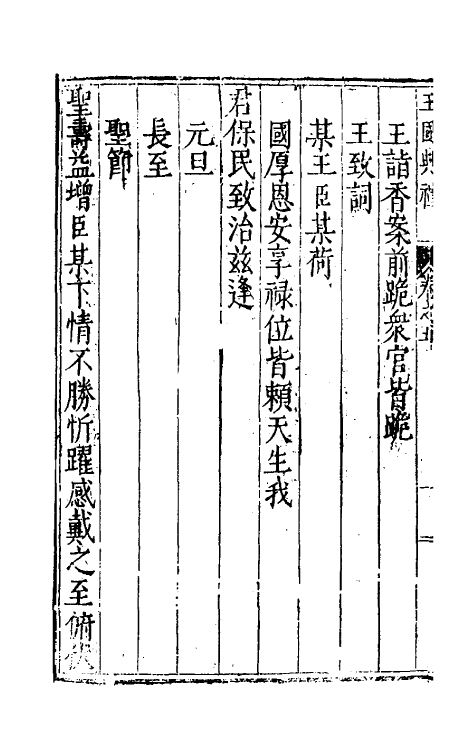 王國典禮 卷之五
王詣香案前跪衆官皆跪
王致詞
某王臣某荷
國厚恩安享祿位皆賴天生我
君保民致治茲逢
元旦
長至
聖節
聖壽益增臣某下情不勝忻躍感戴之至俯伏